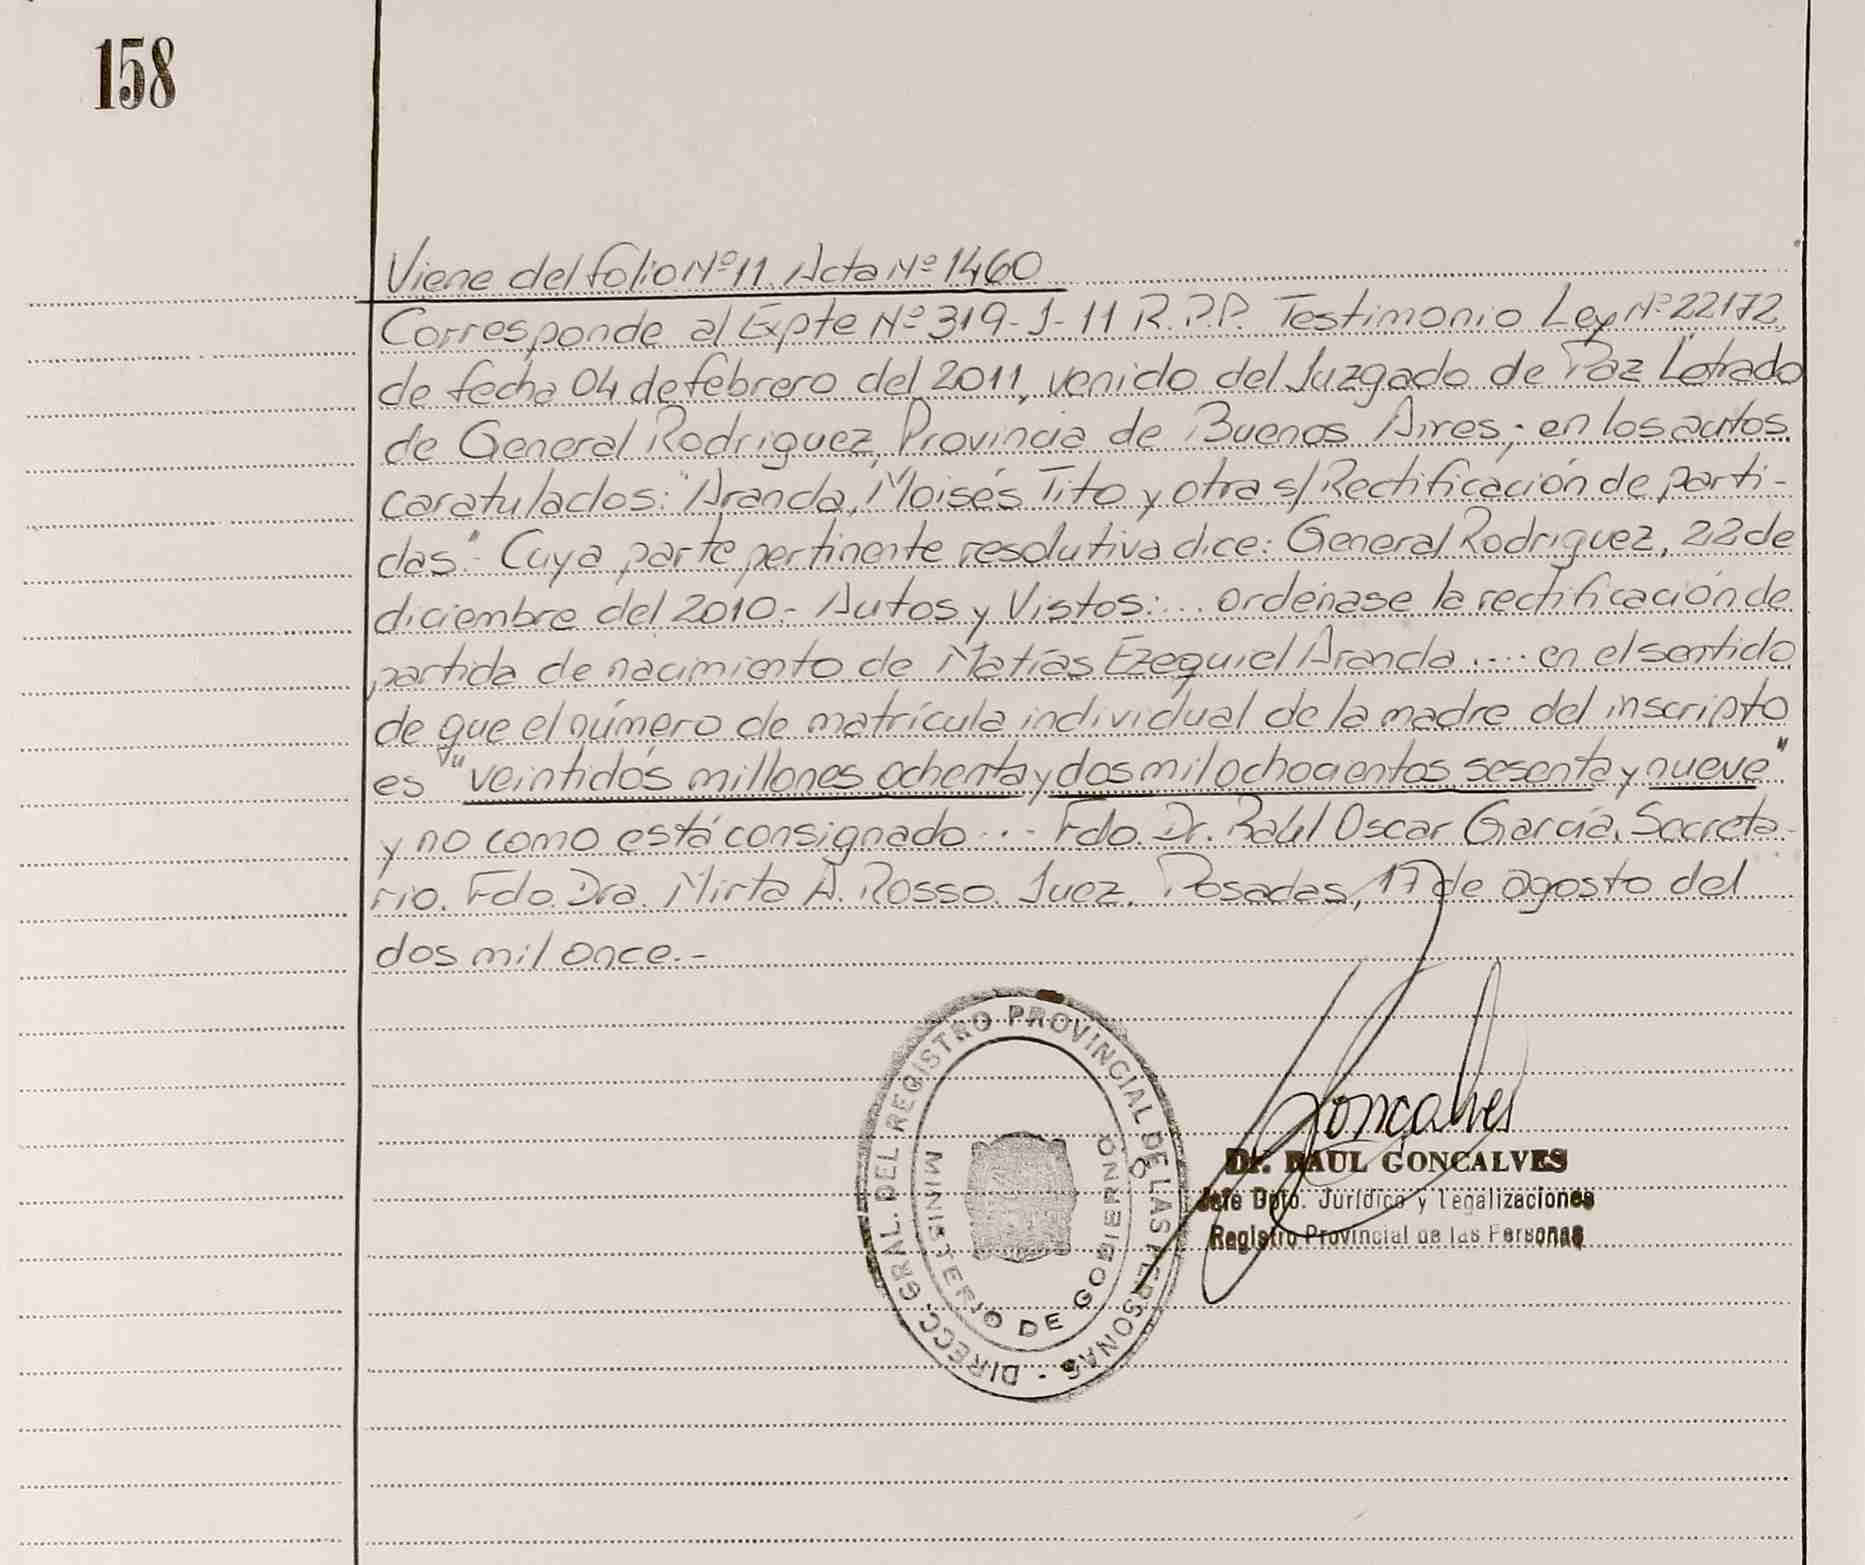 158
Viene del folio Nº 11. Acta Nº 1460
Corresponde al Expte Nº 319-J-11 R.P.P. Testimonio Ley Nº 22172,
de fecha 04 de febrero del 2011, venido del Juzgado de Paz Letrado
de General Rodriguez, Provincia de Buenos Aires; en los autos
caratulados: "Aranda, Moisés Tito y otra s/ Rectificación de parti-
das".- Cuya parte pertinente resolutiva dice: General Rodriguez, 22 de
diciembre del 2010.- Autos y Vistos:... ordénase la rectificación de
partida de nacimiento de Matías Ezequiel Aranda .... en el sentido
de que el número de matrícula individual de la madre del inscripto
es "veintidós millones ochenta y dos mil ochocientos sesenta y nueve"
y no como está consignado... - Fdo. Dr. Raúl Oscar García, Secreta-
rio. Fdo. Dra. Mirta A. Rosso. Juez. Posadas, 17 de agosto del
dos mil once.-
DIRECC. GRAL. DEL REGISTRO PROVINCIAL DE LAS PERSONAS -
MINISTERIO DE GOBIERNO
Goncalves
Dr. RAUL GONCALVES
Jefe Dpto. Jurídico y Legalizaciones
Registro Provincial de las Personas